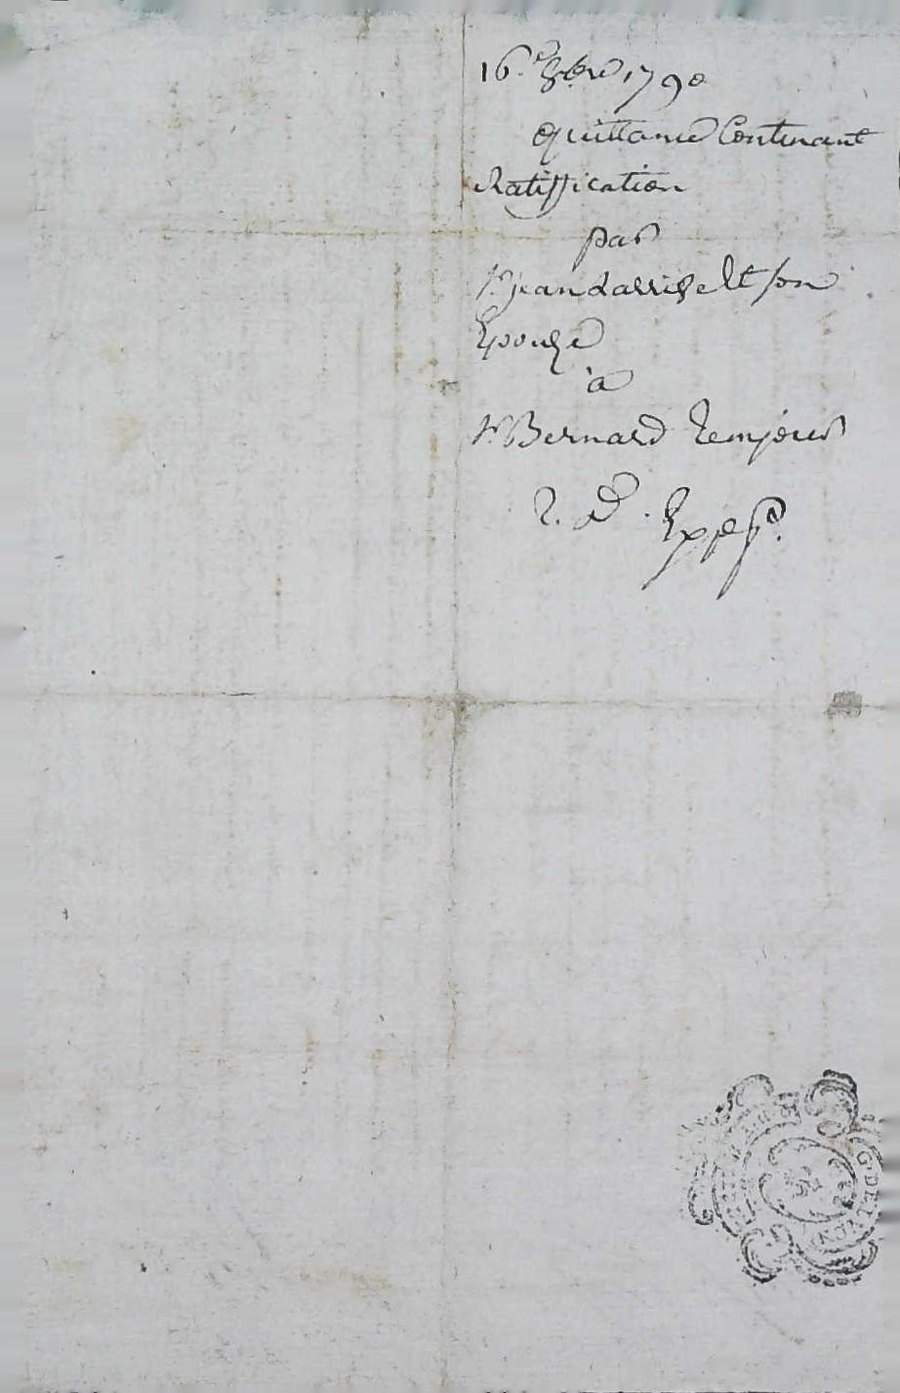 16.e 8bre 1790
quittance Contenant
Ratiffication
par
Sr jean darrige Et son
Epouze
à
Sr Bernard
2. d. Exp.
G. DE